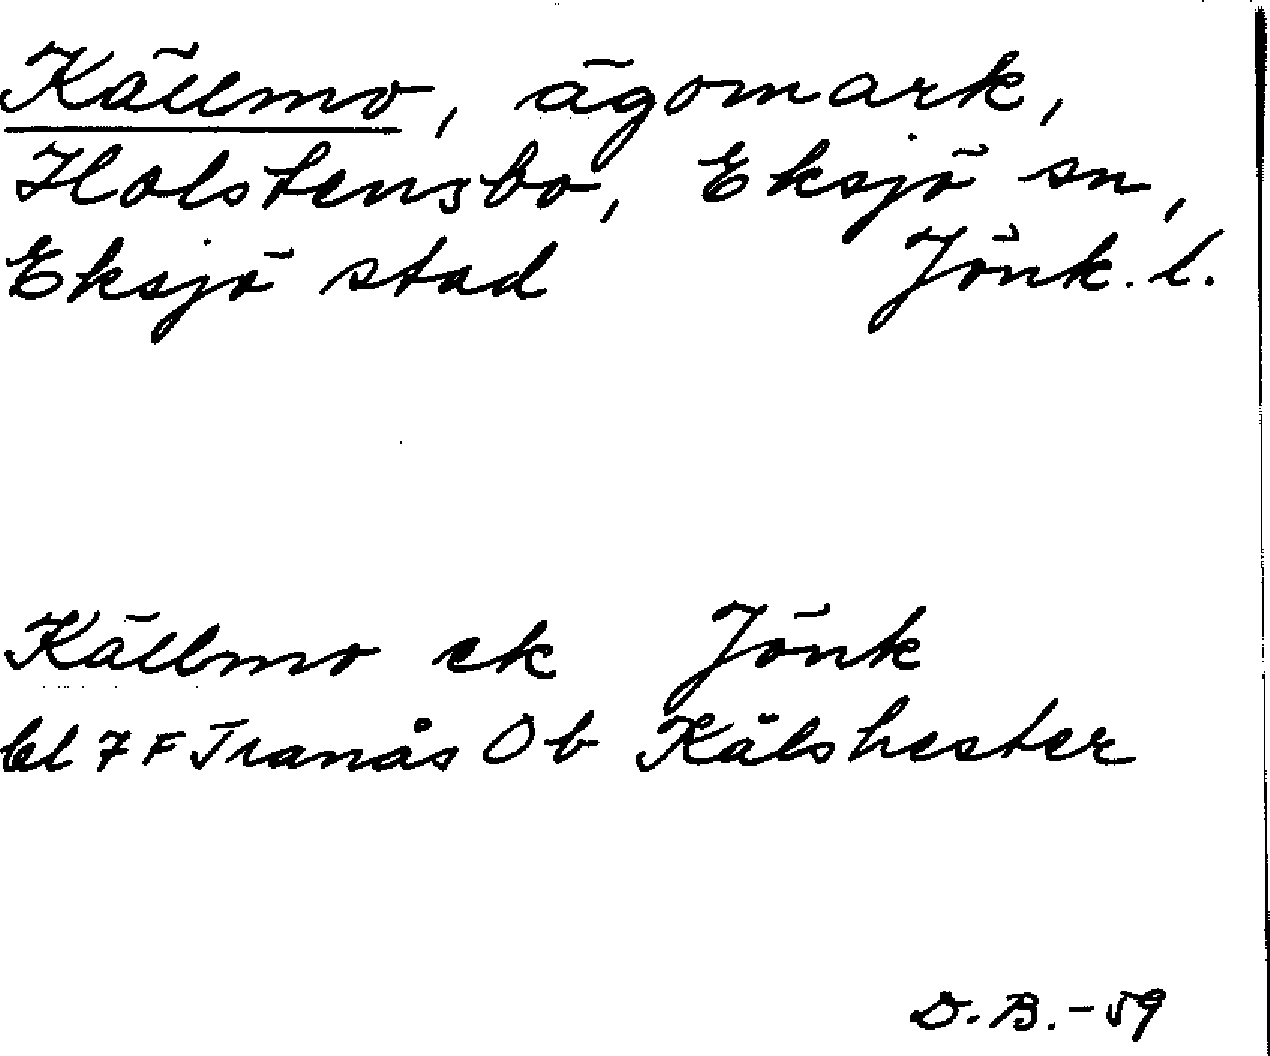 Källmo, ägomark,
Holstensbo, Eksjö sn,
Eksjö stad Jönk. l.
Källmo ek Jönk
bl 7 F Tranås Ob Kälshester
D. B. - 59